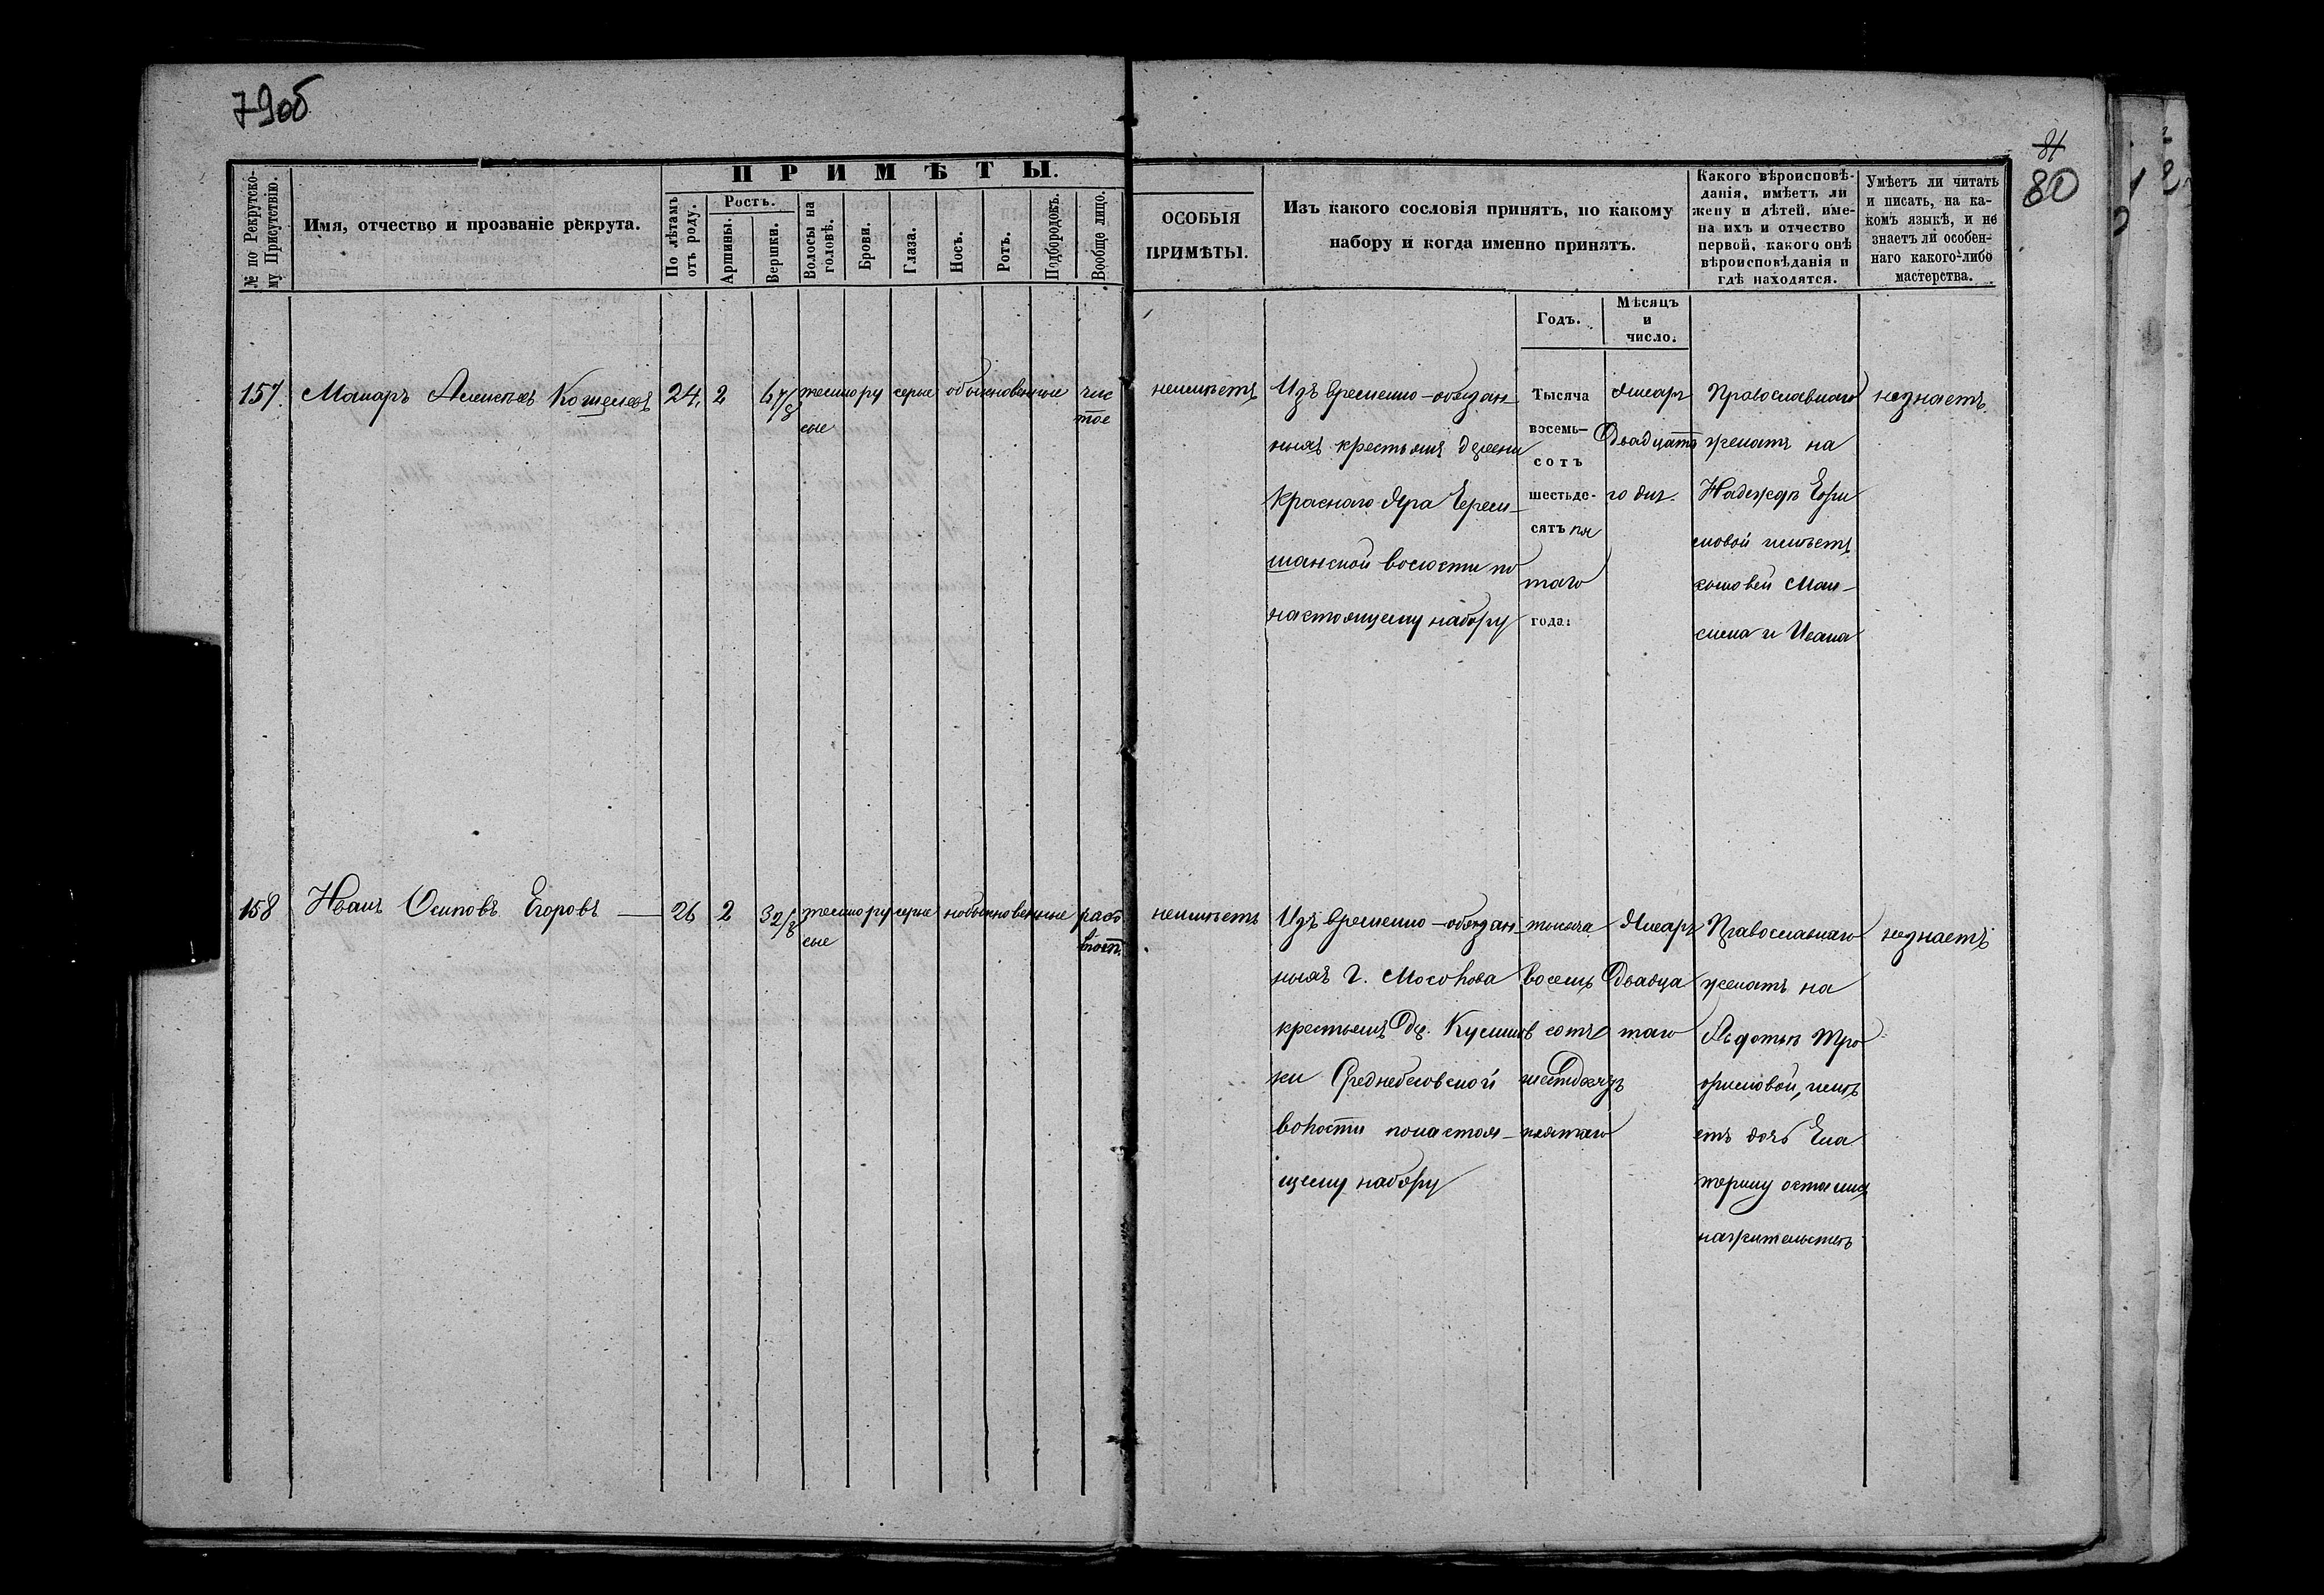 79об
81
80
ПРИМѢТЫ.
№ по Рекрутско-
му Присутствію.
Имя, отчество и прозваніе рекрута.
По лѣтамъ
отъ роду.
Ростъ.
Аршины.
Вершки.
Волосы на
головѣ.
Брови.
Глаза.
Носъ.
Ротъ.
Подбородокъ.
Вообще лицо.
ОСОБЫЯ
ПРИМѢТЫ.
Изъ какого сословія принятъ, по какому
набору и когда именно принятъ.
Какого вѣроисповѣ-
данія, имѣетъ ли
жену и дѣтей, име-
на ихъ и отчество
первой, какого онѣ
вѣроисповѣданія и
гдѣ находятся.
Умѣетъ ли читать
и писать, на ка-
комъ языкѣ, и не
знаетъ ли особен-
наго какого-либо
мастерства.
Годъ.
Мѣсяцъ
и
число.
157. Макаръ Алексѣевъ Кошелевъ 24. 2 6 7/8 темнору
сые серые обыкновенные чис
тое
неимѣетъ
Изъ временно-обязан-
ныхъ крестьянъ деревни
Краснаго Яра Черем-
шанской волости по
настоящему набору
Тысяча
восемь-
сотъ
шестьде-
сятъ пя
таго
года.
Январ
Двадцата
го дня.
Православнаго
женатъ на
Надеждѣ Ефи
мовой имѣетъ
сыновей Мак-
сима и Ивана
незнаетъ.
158 Иванъ Осиповъ Егоровъ 26 2 3 2/8 темнору
сые серые необыкновенные
неимѣетъ
Изъ временно-обязан-
ныхъ г.
крестьянъ де.
ки
волости понастоя-
щему набору
тысяча
восемь
сотъ
пятаго
Январ
Двадца
таго
Православнаго
женатъ на
Авдотьѣ Тро
фимовой, имѣ
етъ дочь Ека
терину
нажительствѣ
незнаетъ